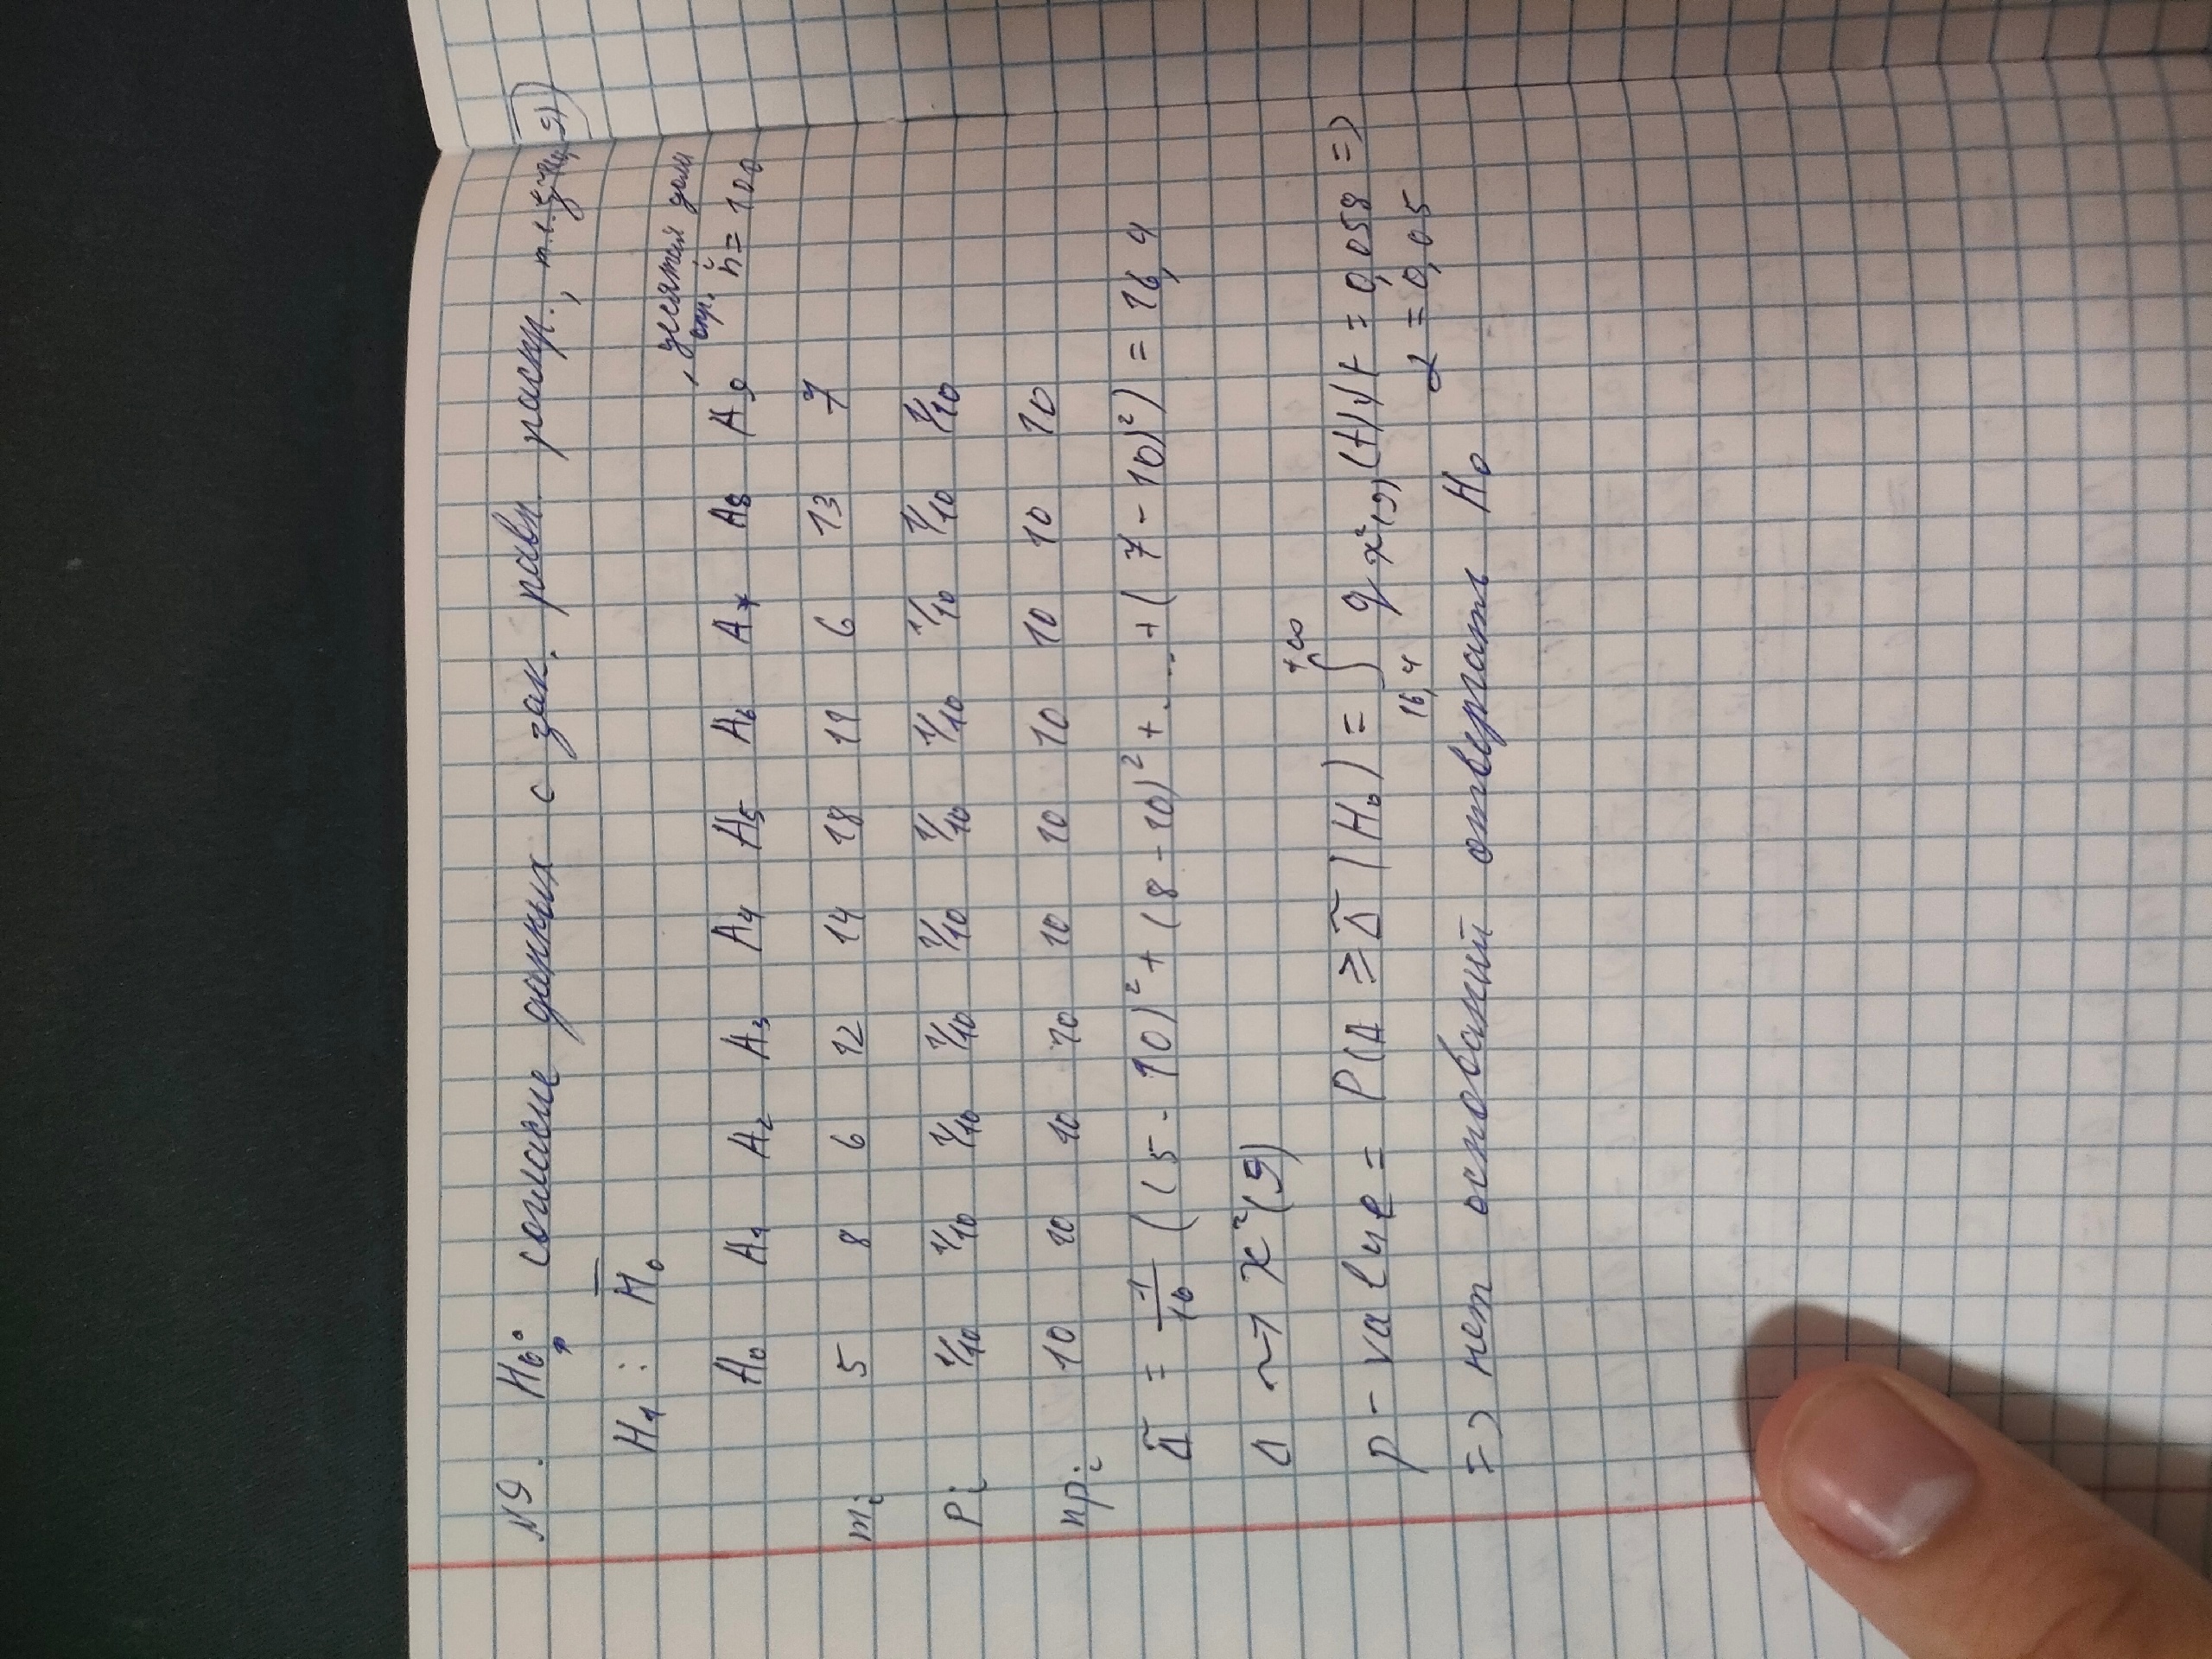 №9. H₀: согласие данных с зак. равн. распр., т.е.
H₁ : H̅₀
десятая доля
A₀ A₁ A₂ A₃ A₄ A₅ A₆ A₇ A₈ A₉ n = 100
mᵢ 5 8 6 12 14 18 11 6 13 7
pᵢ 1/10 1/10 1/10 1/10 1/10 1/10 1/10 1/10 1/10 1/10
npᵢ 10 10 10 10 10 10 10 10 10 10
Δ̃ = 1/10 ((5 - 10)² + (8 - 10)² + ... + (7 - 10)²) = 16,4
Δ ~> χ²(9)
p-value = P(Δ ≥ Δ̃ | H₀) = ∫₁₆,₄^+∞ q χ²(9) (t) dt = 0,058 =>
α = 0,05
=> нет оснований отвергать H₀